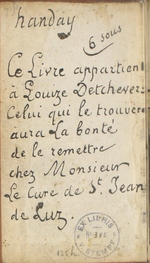 handay
6 sous
Ce Livre appartien
à Louze Detchever:
Celui qui le trouver
aura La bonté
de le remettre
chez Monsieur
Le Curé de St. Jean
de Luz.
EX LIBRIS